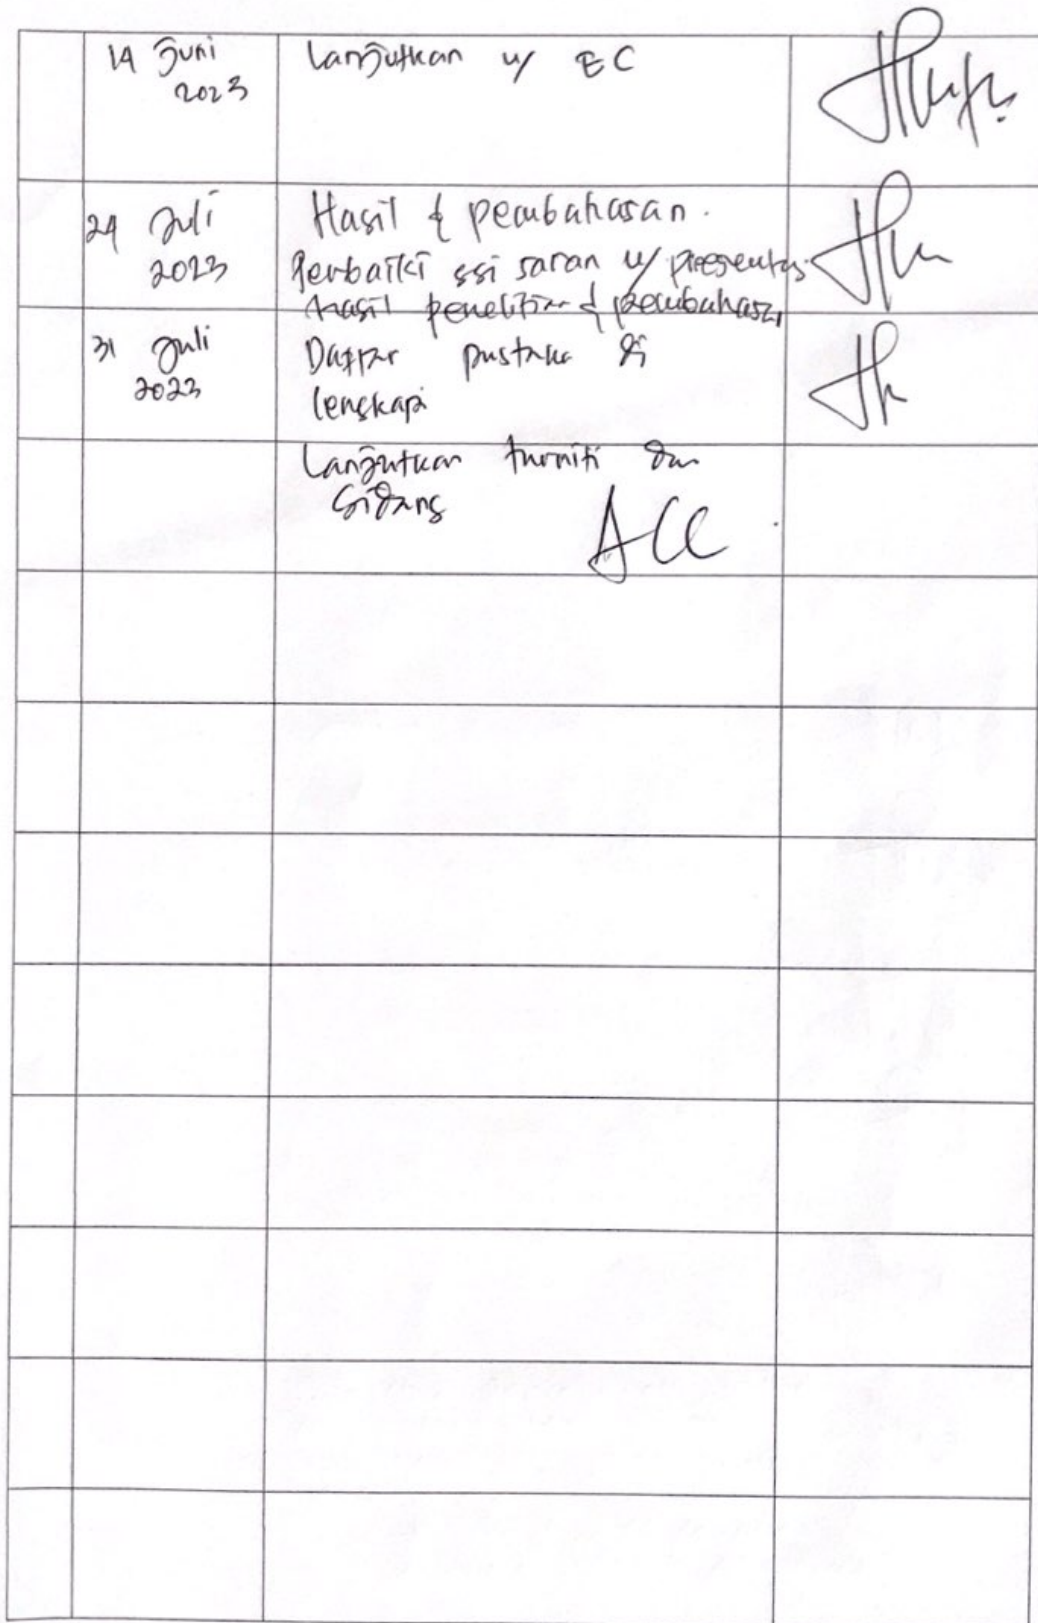 14 Juni
2023
Lanjutkan u/ EC
24 Juli
2023
Hasil & pembahasan.
Perbaiki ssi saran u/ presentasi
hasil penelitian & pembahasan
31 Juli
2023
Daftar pustaka di
lengkapi
Lanjutkan turniti dan
Sidang
ACC